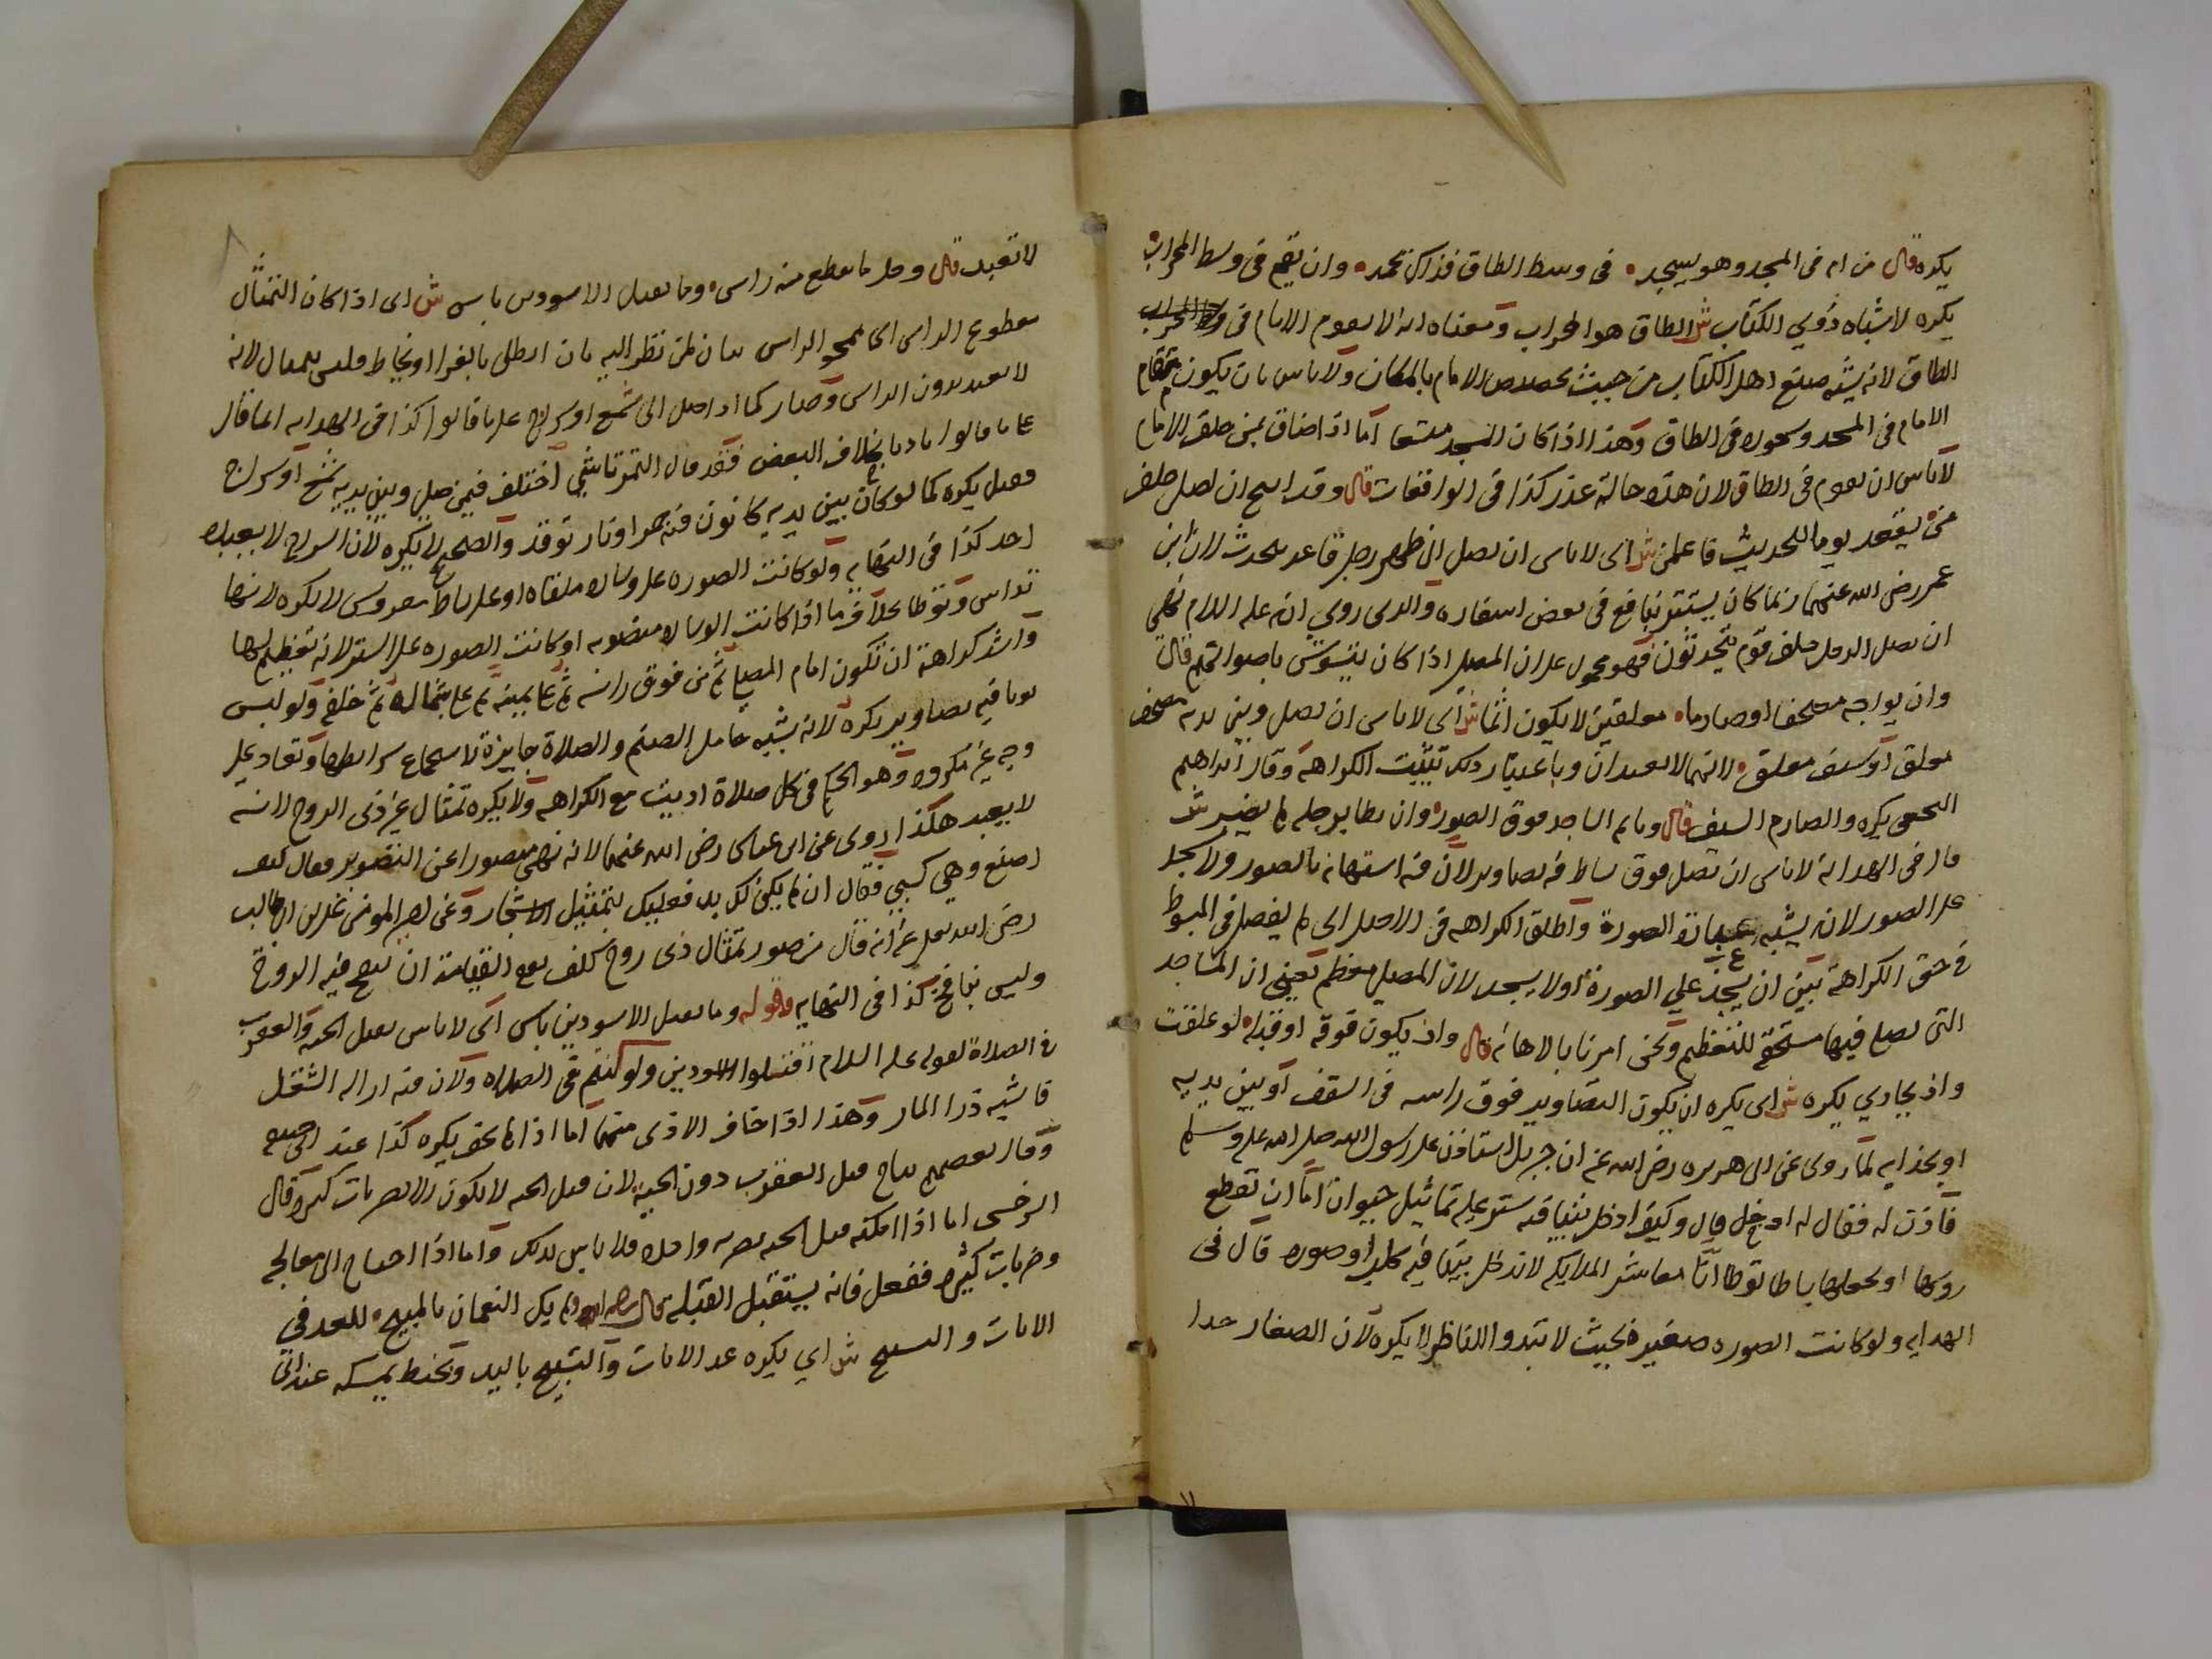 يكره قال من ام في المسجد وهو يسجد في وسط الطاق فذاك يحمد وان يقم في وسط المحراب
يكره لاشتباه ذوي الكتاب ش الطاق هو المحراب ومعناه انه لا يقوم الامام في
الطاق لانه يشبه صنع اهل الكتاب من حيث تخصيص الامام بالمكان ولا باس بان يكون مقام
الامام في المسجد وسجوده في الطاق وهذا اذا كان المسجد متسعا اما اذا ضاق بمن خلف الامام
لا باس ان يقوم في الطاق لان هذه حالة عذر كذا في الواقعات قال وقد ابيح ان يصلي خلف
من يقعد يوما للحديث فاعلمن ش اي لا باس ان يصلي الى ظهر رجل قاعد يتحدث لان ابن
عمر رضي الله عنهما ربما كان يستتر بنافع في بعض اسفاره والذي روي انه عليه السلام نهى
ان يصلي الرجل خلف قوم يتحدثون فهو محمول على ان المصلي اذا كان يتشوش باصواتهم قال
وان يواجه مصحفا او صارما معلقين لا يكون اثما ش اي لا باس ان يصلي وبين يديه مصحف
معلق او سيف معلق لانهما لا يعبدان وباعتبار ذلك تثبت الكراهة وقال ابراهيم
النخعي يكره والصارم السيف قال وما تم الساجد فوق الصور وان يطا برجله لم يضر ش
قال في الهداية لا باس ان يصلي فوق بساط فيه تصاوير لان فيه استهانة بالصور ولا يسجد
على الصور لانه يشبه عبادة الصورة واطلق الكراهة في الاصل اي لم يفصل في المبسوط
في حق الكراهة بين ان يسجد على الصورة او لا يسجد لان المصلي معظم يعني ان المساجد
التي يصلي فيها مستحق للتعظيم ونحن امرنا بالاهانة قال واذ يكون فوقه او قبله لو علقت
واذ يحاذي يكره ش اي يكره ان يكون التصاوير فوق راسه في السقف او بين يديه
او بحذايه لما روى عن ابي هريره رضي الله عنه ان جبريل استاذن على رسول الله صلى الله عليه وسلم
فاذن له فقال له ادخل قال وكيف ادخل بيتا فيه ستر عليه تماثيل حيوان اما ان تقطع
روسها او تجعلها بساطا توطا انا معاشر الملايكه لا ندخل بيتا فيه كلب او صوره قال في
الهدايه ولو كانت الصوره صغيره بحيث لا تبدو للناظر لا يكره لان الصغار جدا
لا تعبد قال وهل ما يقطع منه راس وما بقتل الاسودين باس ش اي اذا كان التمثال
مقطوع الراس اي ممحو الراس لانه
لا يعبد بدون الراس وصار كما اذا صلى الى شمع او سراج على ما قالوا كذا في الهدايه انما قال
على ما قالوا بخلاف البعض فقد قال التمرتاشي اختلف فيمن صلى وبين يديه شمع او سراج
فقيل يكره كما لو كان بين يديه كانون فيه جمر او نار توقد والصحيح لا يكره لان السراج لا يعبده
احد كذا في النهايه ولو كانت الصوره على وساده ملقاه او على بساط مفروش لا يكره لانها
تداس وتوطا بخلاف ما اذا كانت الوساده منصوبه او كانت الصوره على الستر لانه تعظيم لها
واشد كراهة ان تكون امام المصلي ثم من فوق راسه ثم على يمينه ثم على شماله ثم خلفه ولو لبس
ثوبا فيه تصاوير يكره لانه يشبه حامل الصنم والصلاة جايزة لاستجماع شرايطها وتعاد على
وجه غير مكروه وهو الحكم في كل صلاة اديت مع الكراهه ولا يكره تمثال غير ذي الروح لانه
لا يعبد هكذا روى عن ابن عباس رضي الله عنهما لانه نهى مصورا عن التصوير فقال كيف
اصنع وهي كسبي فقال ان لم يكن لك بد فعليك بتمثيل الاشجار وعن امير المومنين علي بن ابي طالب
رضي الله تعالى عنه انه قال من صور تمثال ذي روح كلف يوم القيامة ان ينفخ فيه الروح
وليس بنافخ كذا في النهايه وقوله وما بقتل الاسودين باس اي لا باس بقتل الحيه والعقرب
في الصلاة لقوله عليه السلام اقتلوا الاسودين ولو كنتم في الصلاه ولان فيه ازاله الشغل
فاشبه درا المار وهذا اذا خاف الاذى منهما اما اذا لم يخف يكره كذا عند
وقال بعضهم يباح قتل العقرب دون الحية لان قتل الحيه لا يكون الا بضربات كثيره وقال
السرخسي اما اذا امكنه قتل الحيه بضربه واحده فلا باس بذلك واما اذا احتاج الى معالجه
وضربات كثيره ففعل فانه يستقبل القبله قال ولم يكن النعمان بالمبيح للعد في
الايات والتسبيح ش اي يكره عد الايات والتسبيح باليد وبخيط يمسكه عند ابي